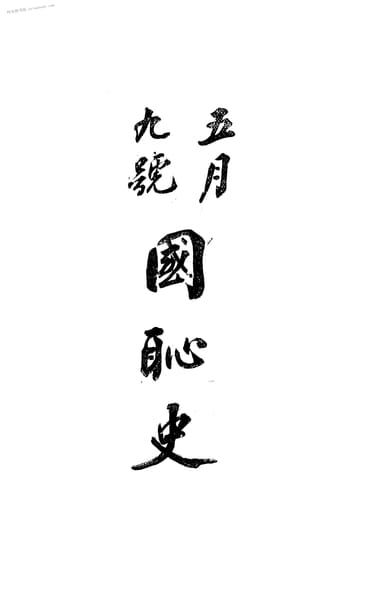 五月
九號
國恥史